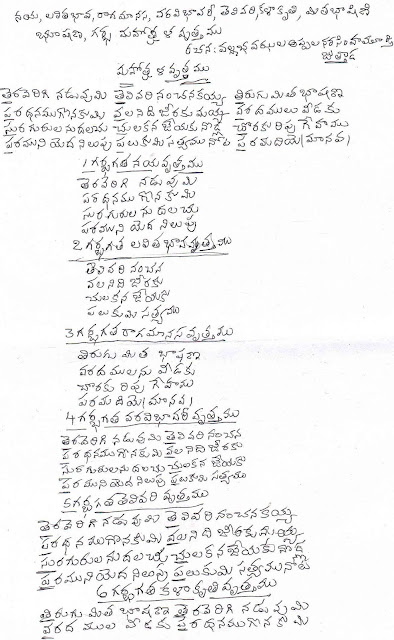 నయ, లలితభావ, రాగమానస, వరవిభావరీ, తెలివరి, కళాకృతి, మితభాషిణి
భూషణ, గర్భ మహోత్పళ వృత్తము
రచన: వల్లభవఝల అప్పల నరసింహమూర్తి
జుత్తాడ
మహోత్పళ వృత్తము
తెరవెరిగి నడువుమి తెలివరి నంచనకయ్య తిరుగు మిత భాషణ
పరధనముగొనకుమి వలనిది జేరకుమయ్య వరదములు వీడకు
సురగురుల నుదలచు చులకన జేయకు నాడ్ల చొరకు రిపు గేహము
పరముని యెద నిలుపు పలుకుమి సత్యము నోట పరమదియె(మానవ)
1 గర్భగత నయ వృత్తము
తెరవెరిగి నడువుమి
పరధనము గొనకుమి
సురగురుల నుదలచు
పరముని యెద నిలుపు
2. గర్భగత లలితభావ వృత్తము
తెలివరి నంచన
వలనిది జేరకు
చులకన జేయకు
పలుకుమి సత్యము
3 గర్భగత రాగమానస వృత్తము
తిరుగు మిత భాషణ
వరదములను వీడకు
చొరకు రిపు గేహము
పరమదియె(మానవ)
4 గర్భగత వరవిభావరీ వృత్తము
తెరవెరిగి నడువుమి తెలివరి నంచన
పరధనముగొనకుమి వలనిది జేరకు
సురగురుల నుదలచు చులకన జేయకు
పరముని యెద నిలుపు పలుకుమి సత్యము
5 గర్భగత తెలివరి వృత్తము
తెరవెరిగి నడువుమి తెలివరి నంచనకయ్య
పరధనముగొనకుమి వలనిది జేరకుమయ్య
సురగురుల నుదలచు చులకన జేయకు నాడ్ల
పరముని యెద నిలుపు పలుకుమి సత్యము నోట
6 గర్భగత కళాకృతి వృత్తము
తిరుగు మిత భాషణ తెరవెరిగి నడువుమి
వరదముల వీడకు పరధనముగొనకుమి